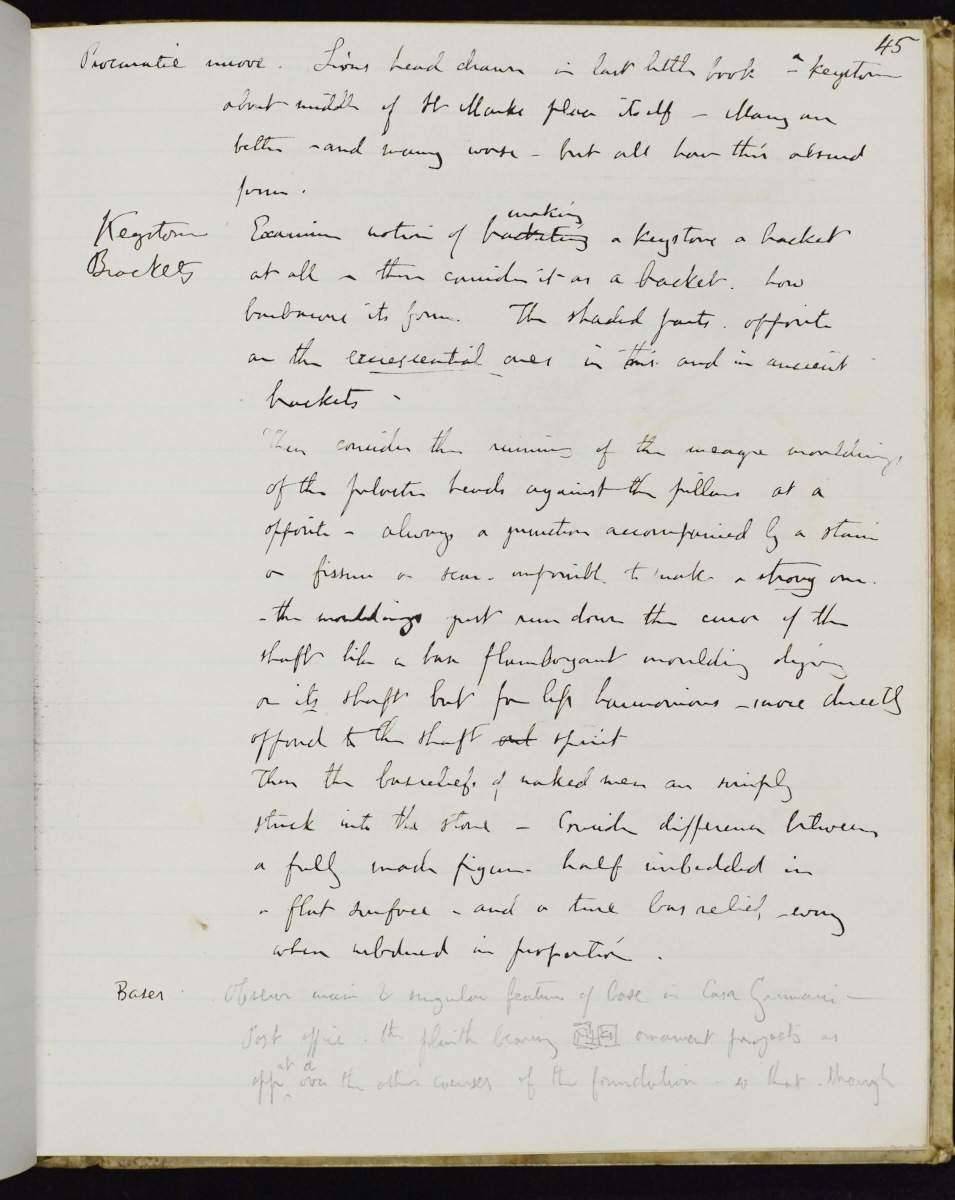 45
Procuratie nuove. Lions head drawn in last little book - a keystone
about middle of St Marks place itself - Many are
better - and many worse - but all have this absurd
form.
Keystone Brackets
Examine notion of bracketing making a keystone a bracket
at all - then consider it as a bracket. how
barbarous its form. The shaded parts. opposite
are the excrescential ones in this and in ancient
brackets -
Then consider the running of the meagre mouldings
of the pilaster heads against the pillars at a
opposite - always a junction accompanied by a stain
or fissure or scar. impossible to make a strong one.
- the mouldings just run down the curve of the
shaft like a base flamboyant moulding dying
on its shaft but far less harmonious - more directly
opposed to the shaft and spirit
Then the basreliefs of naked men are simply
stuck into the stone - Consider difference between
a fully made figure half imbedded in
a flat surface - and a true bas relief, every
when subdued in proportion.
Bases
Observe main & singular feature of base in Casa Grimani -
Post office. the plinth bearing ornament projects as
at a
opp over the other courses of the foundation - so that though